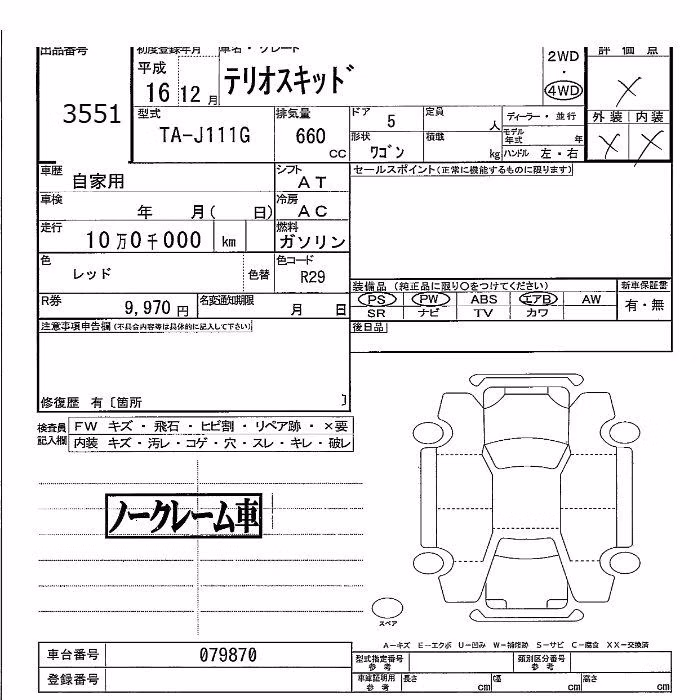 出品番号 3551
初度登録年月 平成 16 12 月
車名・グレード テリオスキッド
2WD・4WD
評価点 ×
型式 TA-J111G
排気量 660 CC
ドア 5
定員 人
ディーラー・並行
外装 内装
× ×
形状 ワゴン
積載 kg
モデル年式 年
ハンドル 左・右
車歴 自家用
シフト AT
セールスポイント(正常に機能するものに限ります)
車検 年 月( 日)
冷房 AC
走行 10万0千000 km
燃料 ガソリン
色 レッド 色替
色コード R29
装備品(純正品に限り○をつけてください)
新車保証書
PS PW ABS エアB AW
有・無
SR ナビ TV カワ
R券 9,970円
名変通知期限 月 日
注意事項申告欄(不具合内容等は具体的に記入して下さい)
後日品
修復歴 有〔箇所 〕
検査員記入欄
FW キズ・飛石・ヒビ割・リペア跡・×要
内装 キズ・汚レ・コゲ・穴・スレ・キレ・破レ
ノークレーム車
スペア
A−キズ E−エクボ U−凹み W−補修跡 S−サビ C−腐食 XX−交換済
車台番号 079870
型式指定番号 参考
類別区分番号 参考
登録番号
車庫証明用 参考
長さ cm
幅 cm
高さ cm